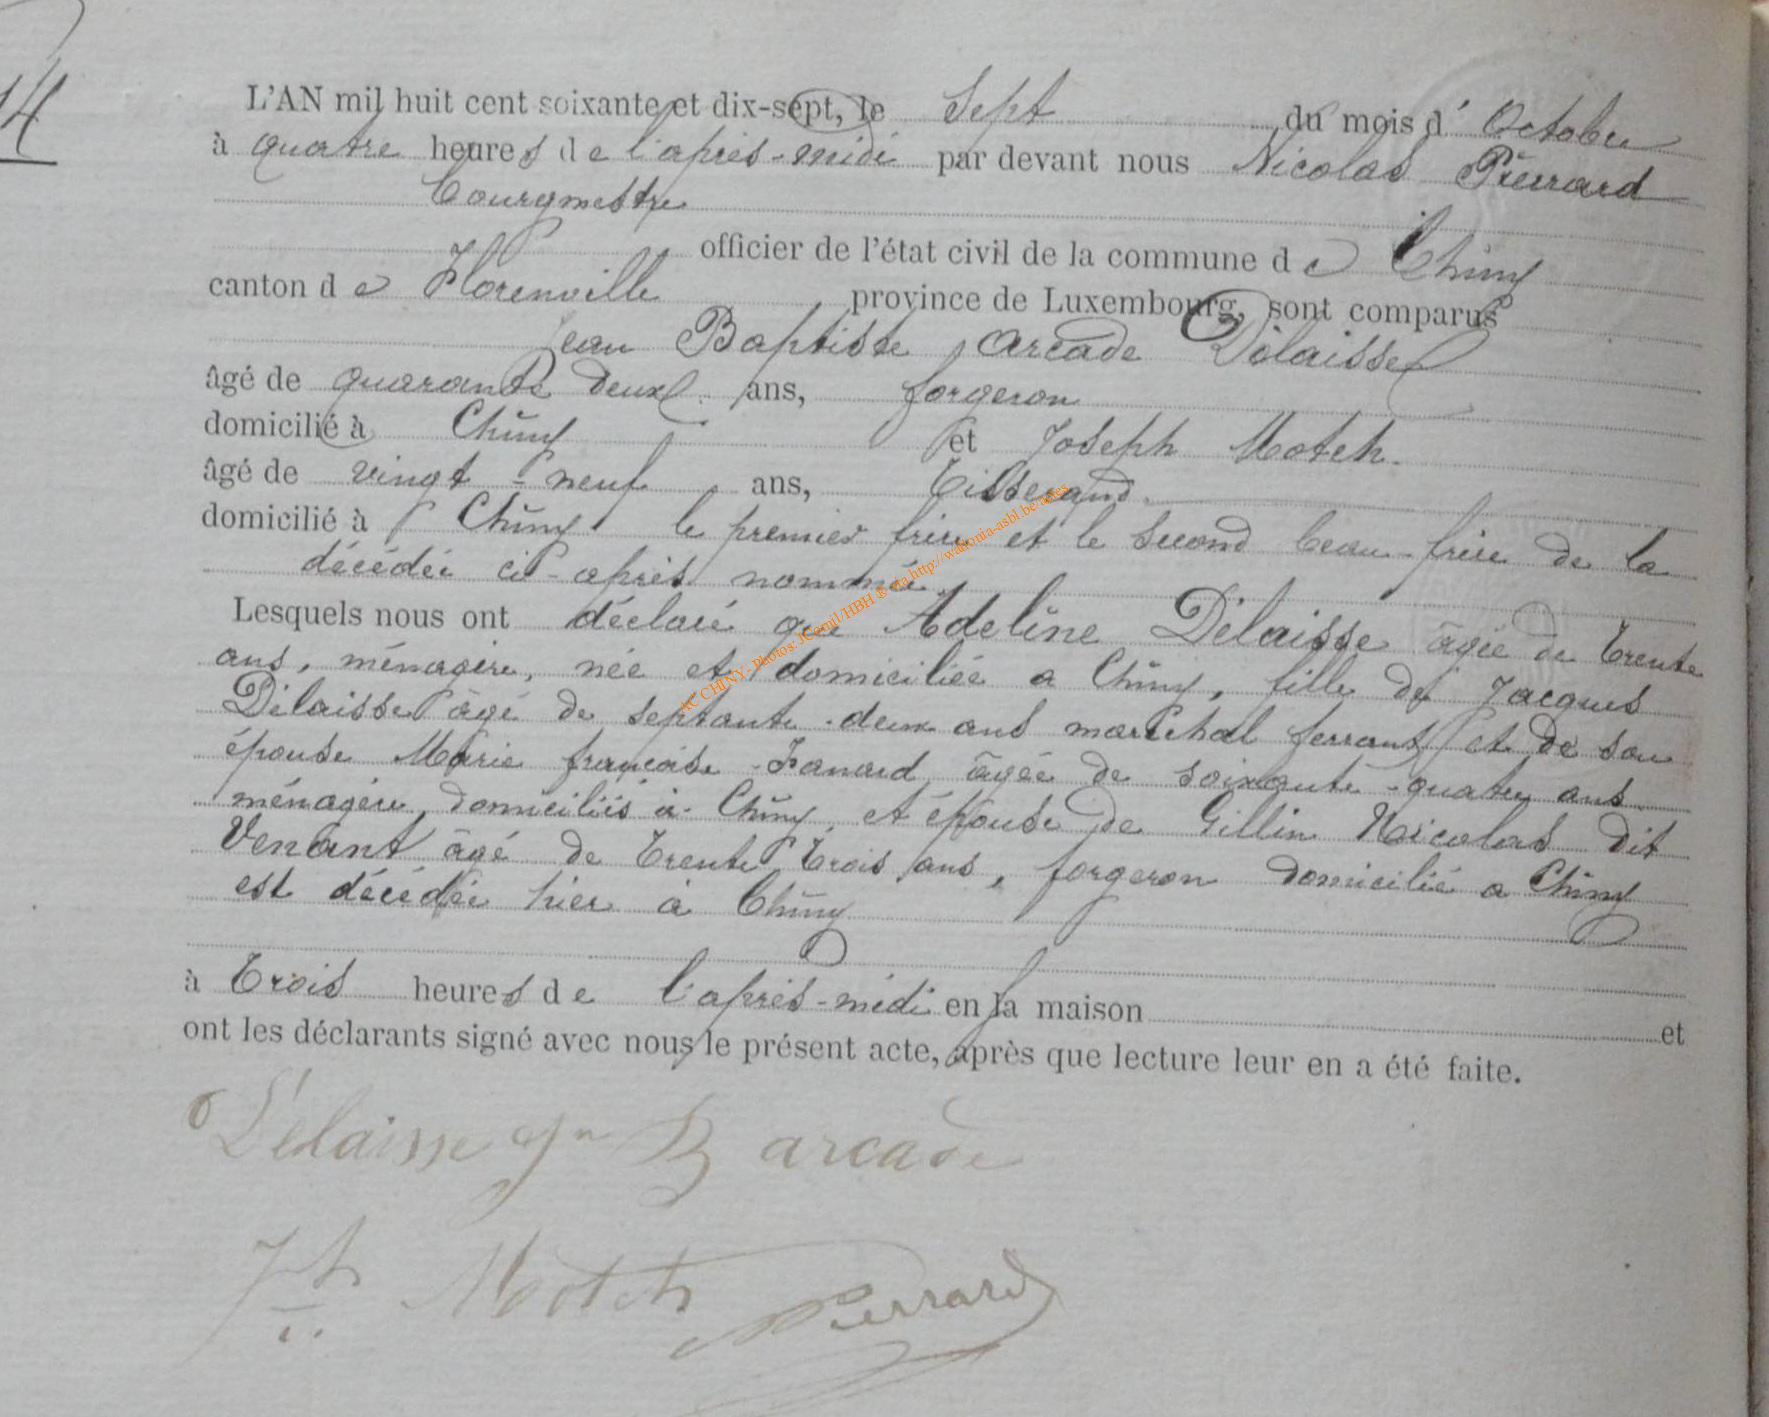 14
L'AN mil huit cent soixante et dix-sept, le sept du mois d' Octobre
à quatre heures de l'après-midi par devant nous Nicolas Pierrard
Bourgmestre
officier de l'état civil de la commune de Chiny
canton de Florenville province de Luxembourg, sont comparus
Jean Baptiste Arcade Délaisse
âgé de quarante deux ans, forgeron
domicilié à Chiny et Joseph Moteh
âgé de vingt-neuf ans, Tisserand
domicilié à Chiny le premier frère et le second beau-frère de la
décédée ci-après nommée.
Lesquels nous ont déclaré que Adeline Délaisse âgée de trente
ans, ménagère, née et domiciliée a Chiny, fille de Jacques
Délaisse âgé de septante-deux ans maréchal ferrant et de son
épouse Marie françoise âgée de soixante-quatre ans
ménagère, domiciliés à Chiny et épouse de Gillin Nicolas dit
Venant âgé de trente trois ans, forgeron domicilié a Chiny
est décédée hier à Chiny
à Trois heures de l'après-midi en la maison et
ont les déclarants signé avec nous le présent acte, après que lecture leur en a été faite.
Délaisse Jn B arcade
Jh Moteh Pierrard
AC CHINY- Photos: JCemil/HBH ® via http://wallonia-asbl.be/actes